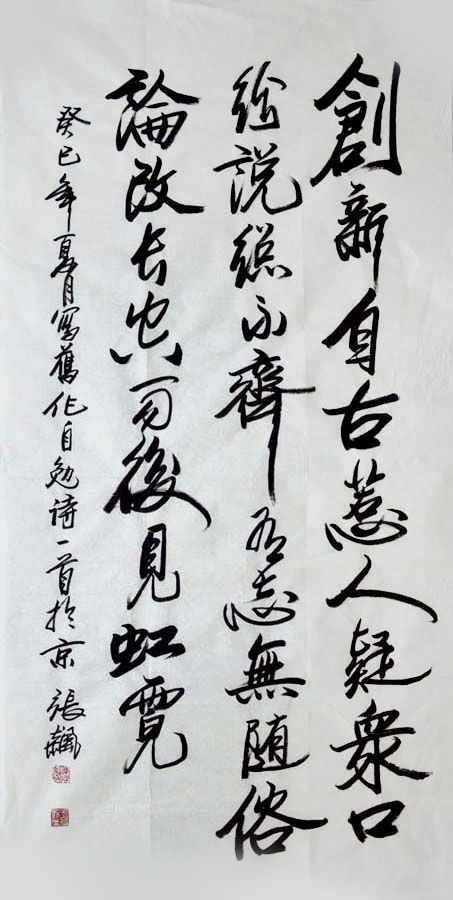 創新自古惹人疑衆口
紛説總不齊有志無随俗
論改长空雨後見虹霓
癸巳年夏月写舊作自勉诗一首於京 張飆